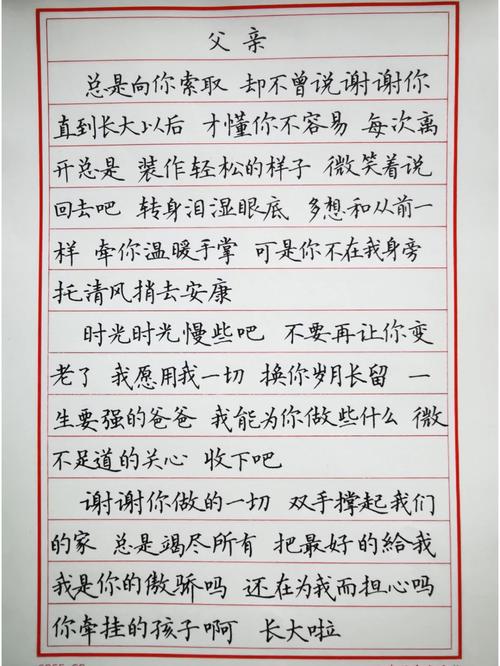 父亲
总是向你索取 却不曾说谢谢你
直到长大以后 才懂你不容易 每次离
开总是 装作轻松的样子 微笑着说
回去吧 转身泪湿眼底 多想和从前一
样 牵你温暖手掌 可是你不在我身旁
托清风捎去安康
时光时光慢些吧 不要再让你变
老了 我愿用我一切 换你岁月长留 一
生要强的爸爸 我能为你做些什么 微
不足道的关心 收下吧
谢谢你做的一切 双手撑起我们
的家 总是竭尽所有 把最好的给我
我是你的傲骄吗 还在为我而担心吗
你牵挂的孩子啊 长大啦